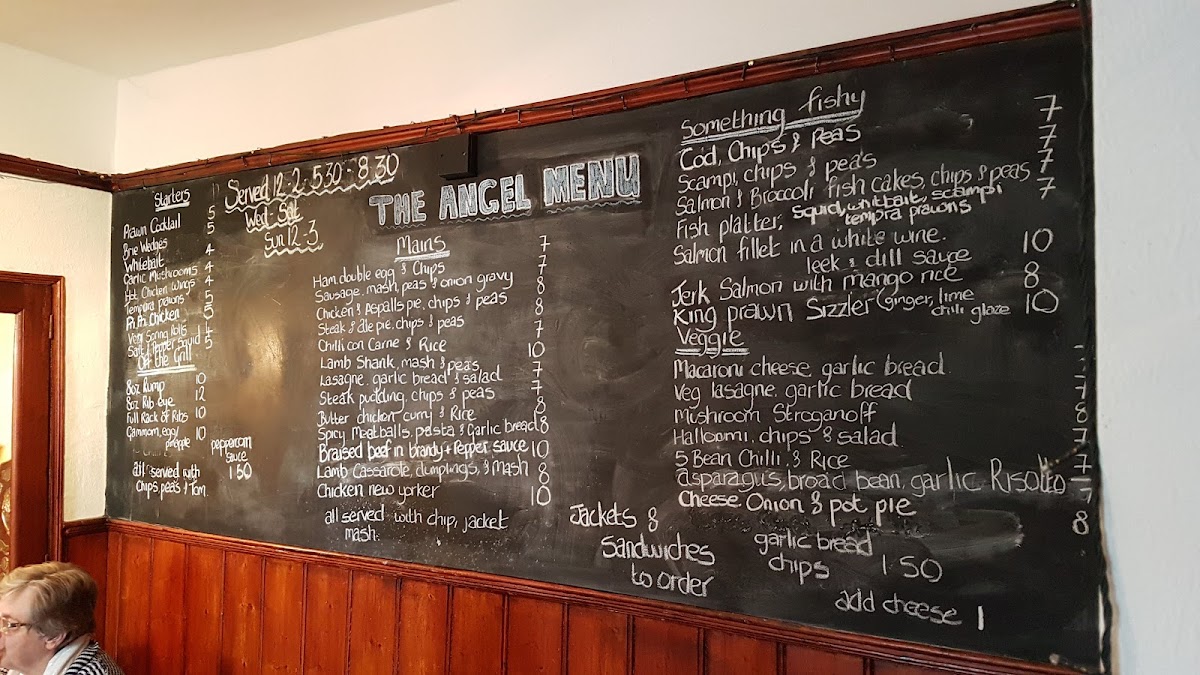 Starters
Prawn Cocktail 5
Brie Wedges 5
Whitebait 4
Garlic Mushrooms 4
Hot Chicken Wings 4
Tempura prawns 5
Piri Piri Chicken 5
Veg Spring Rolls 4
Salt & Pepper Squid 5
Off the Grill
8oz Rump 10
8oz Rib eye 12
Full Rack of Ribs 10
Gammom, egg/ 10
pineapple
all served with
Chips, peas & Tom.
peppercorn
sauce
1 50
Served 12-2, 5.30 - 8.30
Wed-Sat
Sun 12-3
THE ANGEL MENU
Mains
Ham, double egg & Chips 7
Sausage, mash, peas & onion gravy 7
Chicken & Aspalls pie, chips & peas 8
Steak & ale pie, chips & peas 8
Chilli con Carne & Rice 7
Lamb Shank, mash & peas 10
Lasagne, garlic bread & salad 7
Steak pudding, chips & peas 7
Butter chicken curry & Rice 8
Spicy Meatballs, pasta & Garlic bread 8
Braised beef in brandy + Pepper sauce 10
Lamb Casserole, dumplings, & Mash 8
Chicken new yorker 10
all served with chip, jacket
mash.
Something fishy
Cod, Chips & Peas 7
Scampi, chips & peas 7
Salmon & Broccoli fish cakes, chips & peas 7
Fish platter, squid, whitbait, scampi 7
tempra prawns
Salmon fillet in a white wine.
leek & dill sauce 10
Jerk Salmon with mango rice 8
King prawn Sizzler (ginger, lime 10
chilli glaze
Veggie
Macaroni cheese, garlic bread 7
Veg lasagne, garlic bread 7
Mushroom Stroganoff 8
Halloumi, chips & salad 7
5 Bean Chilli, & Rice 7
asparagus, broad bean, garlic Risotto 7
Cheese Onion & pot pie 8
Jackets &
Sandwiches
to order
garlic bread
chips 1 50
add cheese 1